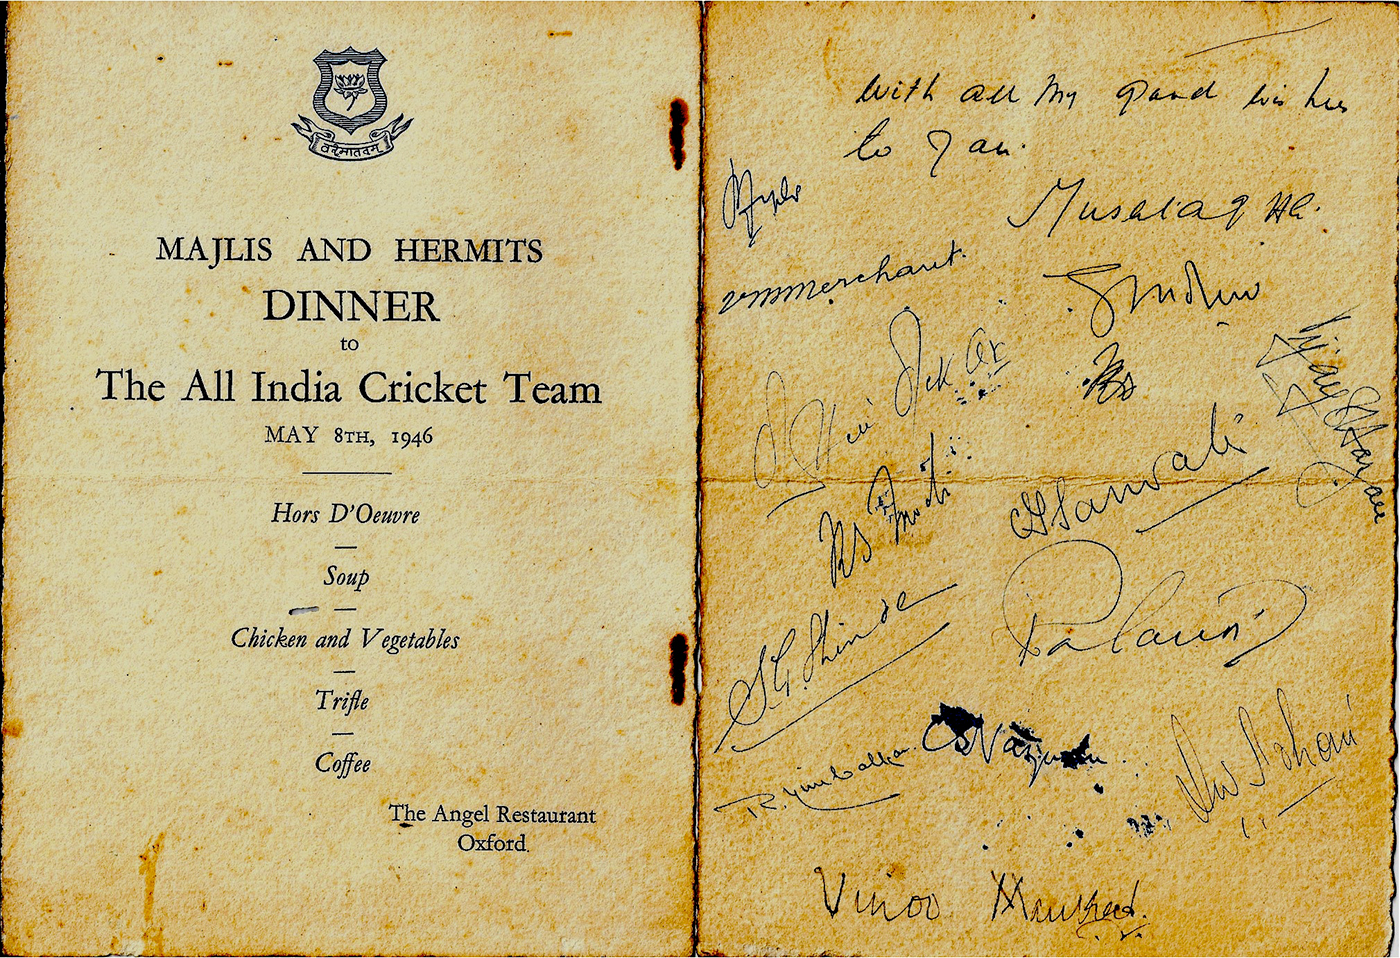 वन्देमातरम्
MAJLIS AND HERMITS
DINNER
to
The All India Cricket Team
MAY 8TH, 1946
Hors D'Oeuvre
Soup
Chicken and Vegetables
Trifle
Coffee
The Angel Restaurant
Oxford.
With all my good wishes
to you.
Mushtaq Ali.
vmmerchant.
RS Modi
CTSarwate
Vijay S Hazare
S.G. Shinde
R. Nimbalkar
CSNayudu
Vinoo Mankad.